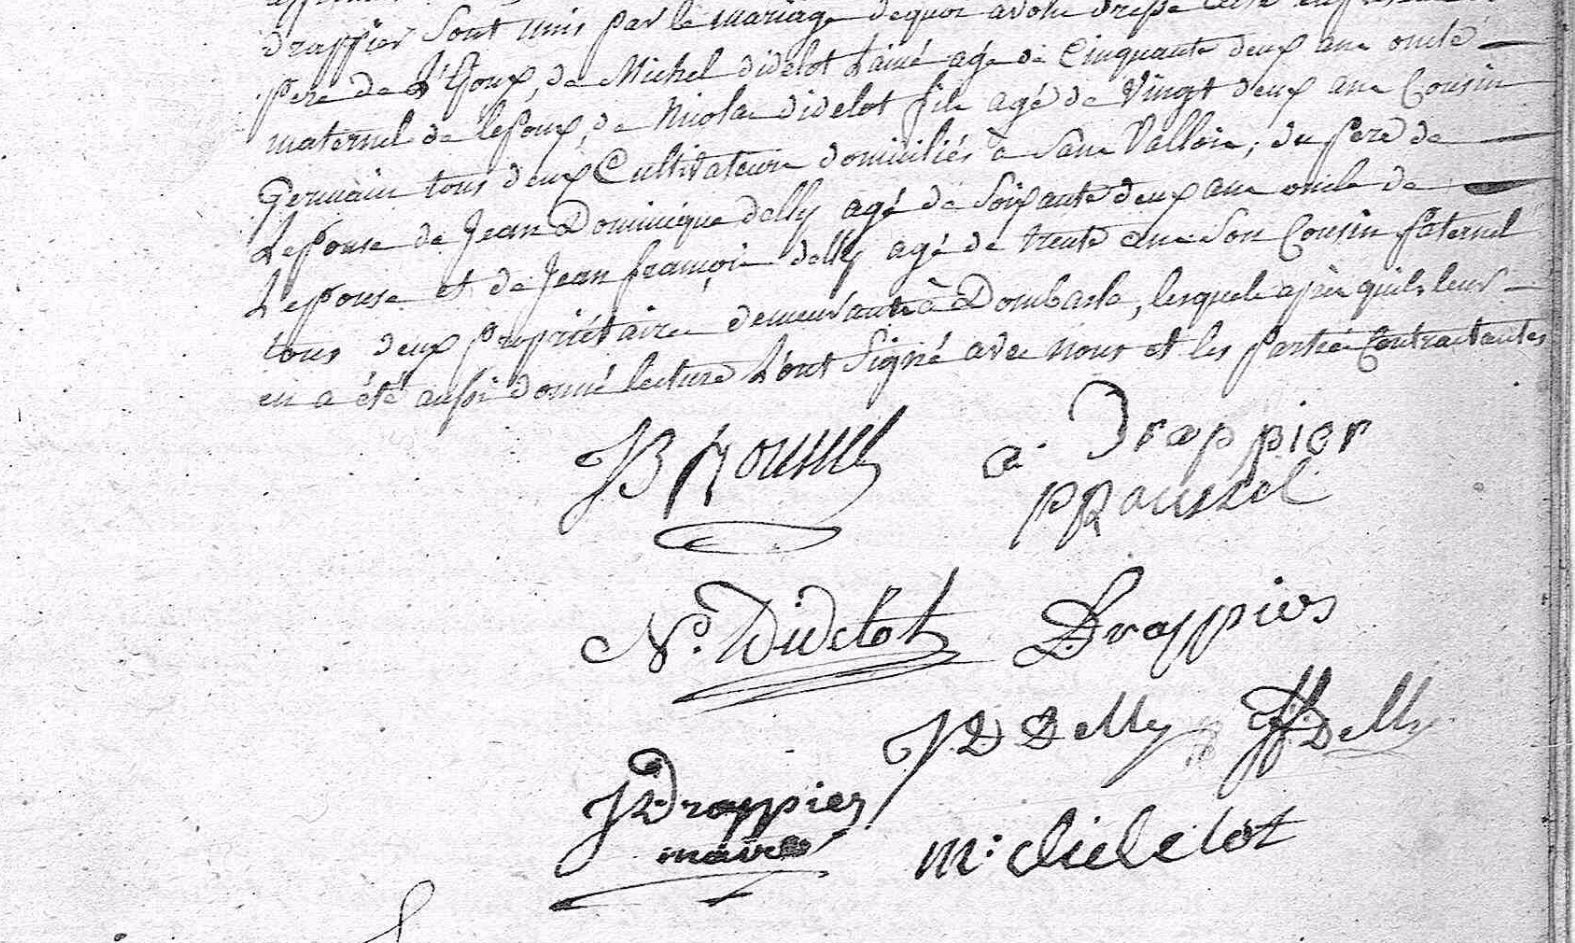 drappier Sont unis par le mariage dequoi avons dressé acte en presence du
pere de L'Epoux, de Michel didelot L'ainé agé de Cinquante deux ans oncle
maternel de lepoux, de Nicolas didelot fils agé de Vingt deux ans Cousin
Germain tous deux Cultivateurs domiciliés à Sans Vallois, du pere de
Lepouse de Jean Dominique delly agé de Soixante deux ans oncle de
Lepouse et de Jean françois delly agé de trente ans Son Cousin paternel
tous deux propriétaires demeurants à Dombasle, lesquels après quils leur
en a été aussi donné lecture L'ont Signé avec nous et les parties Contractantes
JB Roussel a. Drappier
PRoussel
Ns. Didelot Drappier
JD Delly JF Delly
JDrappier
maire m. didelot